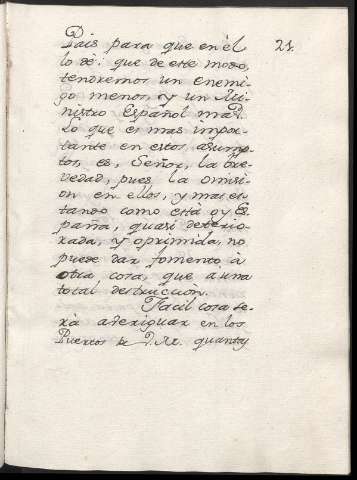 Pais para que en èl 21.
lo dè: que de este modo,
tendremos un enemi-
go menos, y un Mi-
nistro Español mas.
Lo que es mas impor-
tante en estos asump-
tos, es, Señor, la bre-
vedad, pues la omisi-
on en ellos, y mas es-
tando como està oy Es-
paña, quasi deterio-
rada, y oprimida, no
puede dar fomento à
otra cosa, que a una
total destruccion.
Facil cosa se-
rà averiguar en los
Puertos de V. M. quantos